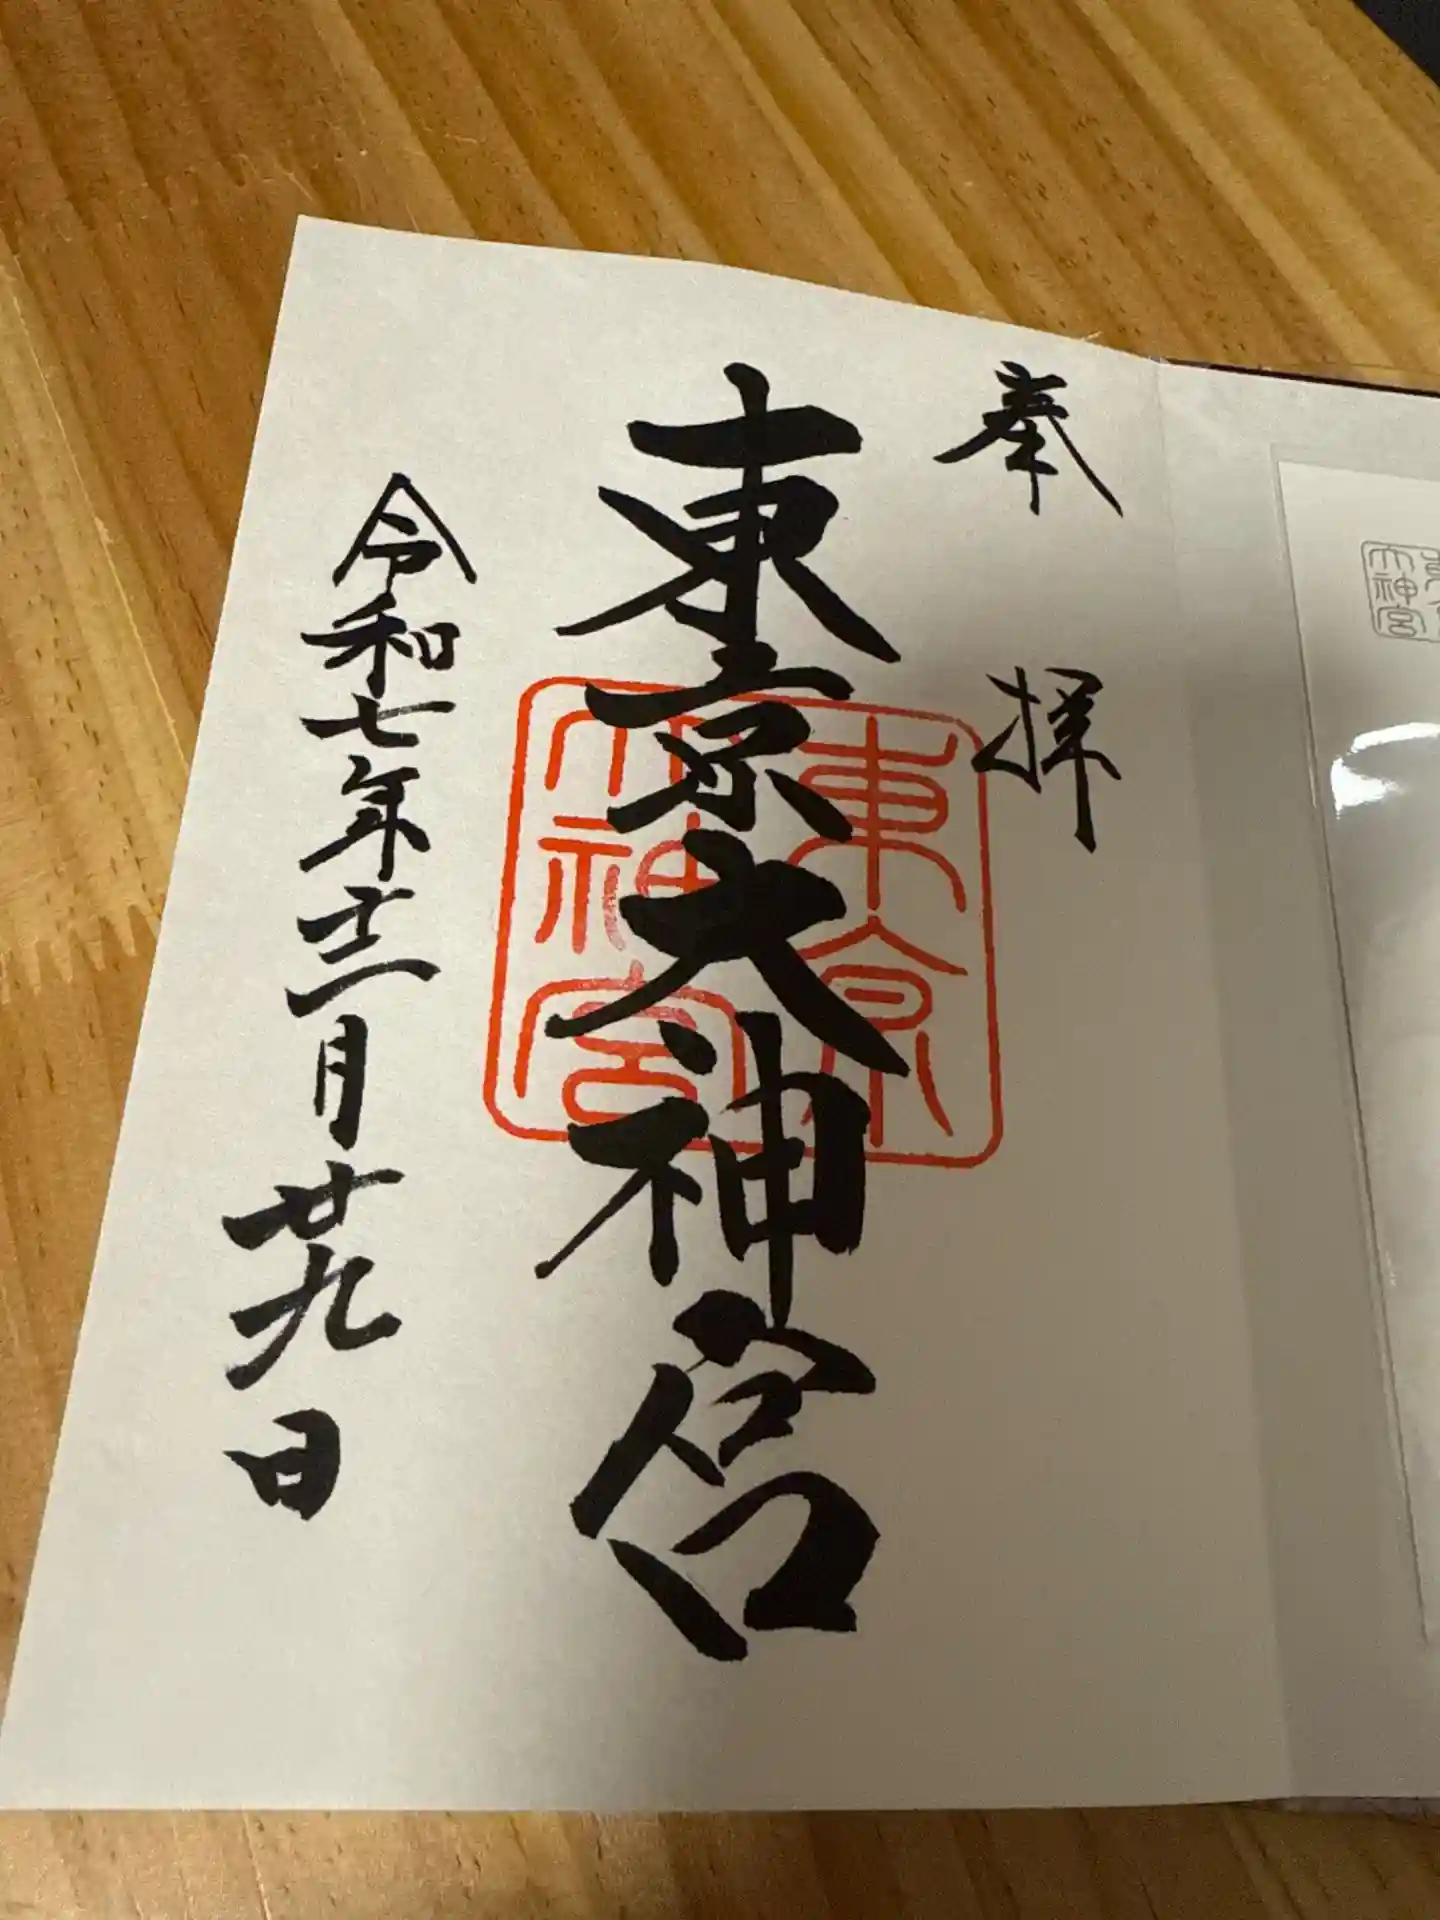 奉拝
東京大神宮
東京
大神宮
令和七年十二月廿九日
大神宮